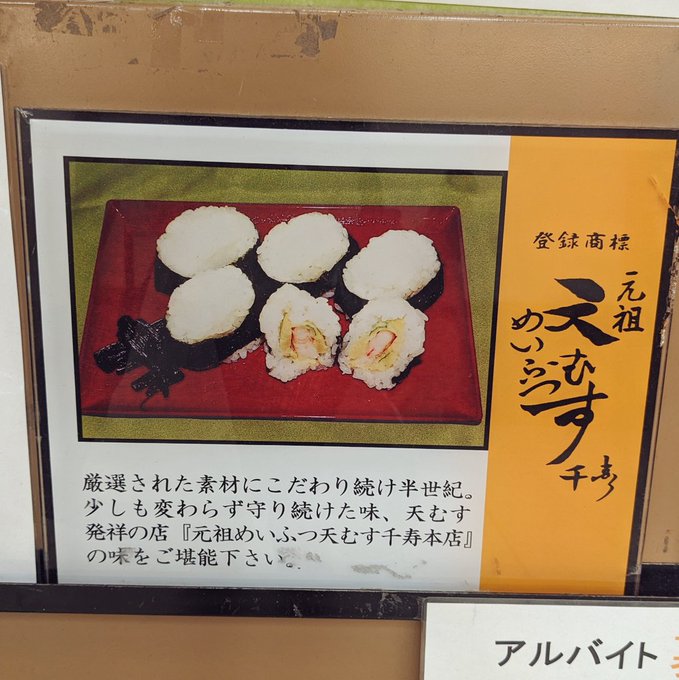 登録商標
元祖
めいふつ
天むす
千寿
厳選された素材にこだわり続け半世紀。
少しも変わらず守り続けた味、天むす
発祥の店『元祖めいふつ天むす千寿本店』
の味をご堪能下さい。
アルバイト